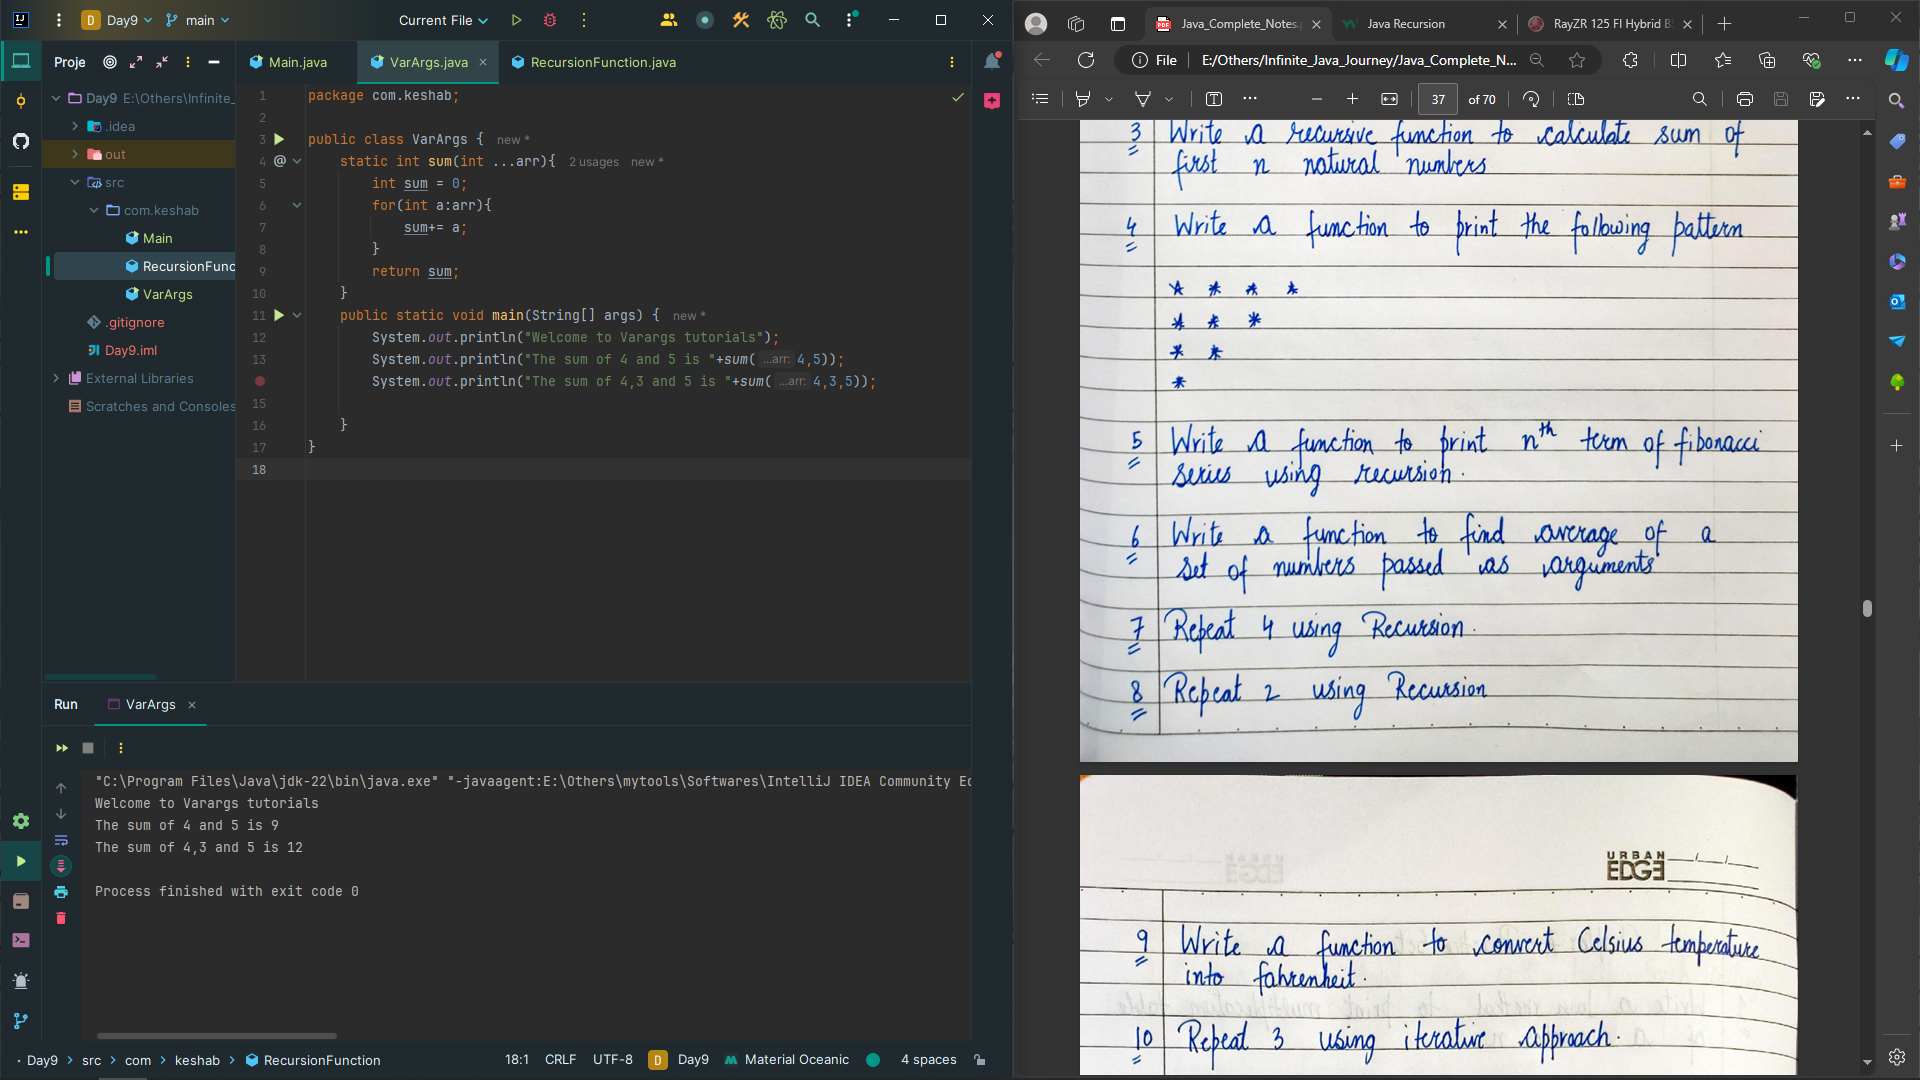 Day9
main
Current File
Proje
Main.java
VarArgs.java
RecursionFunction.java
Day9 E:\Others\Infinite_
.idea
out
src
com.keshab
Main
RecursionFunc
VarArgs
.gitignore
Day9.iml
External Libraries
Scratches and Consoles
1 package com.keshab;
2
3 public class VarArgs { new *
4 @ static int sum(int ...arr){ 2 usages new *
5 int sum = 0;
6 for(int a:arr){
7 sum+= a;
8 }
9 return sum;
10 }
11 public static void main(String[] args) { new *
12 System.out.println("Welcome to Varargs tutorials");
13 System.out.println("The sum of 4 and 5 is "+sum( ...arr: 4,5));
System.out.println("The sum of 4,3 and 5 is "+sum( ...arr: 4,3,5));
15
16 }
17 }
18
Run VarArgs
"C:\Program Files\Java\jdk-22\bin\java.exe" "-javaagent:E:\Others\mytools\Softwares\IntelliJ IDEA Community Ed
Welcome to Varargs tutorials
The sum of 4 and 5 is 9
The sum of 4,3 and 5 is 12
Process finished with exit code 0
Day9 > src > com > keshab > RecursionFunction
18:1 CRLF UTF-8 D Day9 Material Oceanic 4 spaces
Java_Complete_Notes.
Java Recursion
RayZR 125 FI Hybrid BS
File E:/Others/Infinite_Java_Journey/Java_Complete_N...
37 of 70
3 Write a recursive function to calculate sum of
first n natural numbers
4 Write a function to print the following pattern
* * * *
* * *
* *
*
5 Write a function to print nth term of fibonacci
series using recursion.
6 Write a function to find average of a
set of numbers passed as arguments
7 Repeat 4 using Recursion.
8 Repeat 2 using Recursion
URBAN
EDGE
9 Write a function to convert Celsius temperature
into fahrenheit.
10 Repeat 3 using iterative approach.